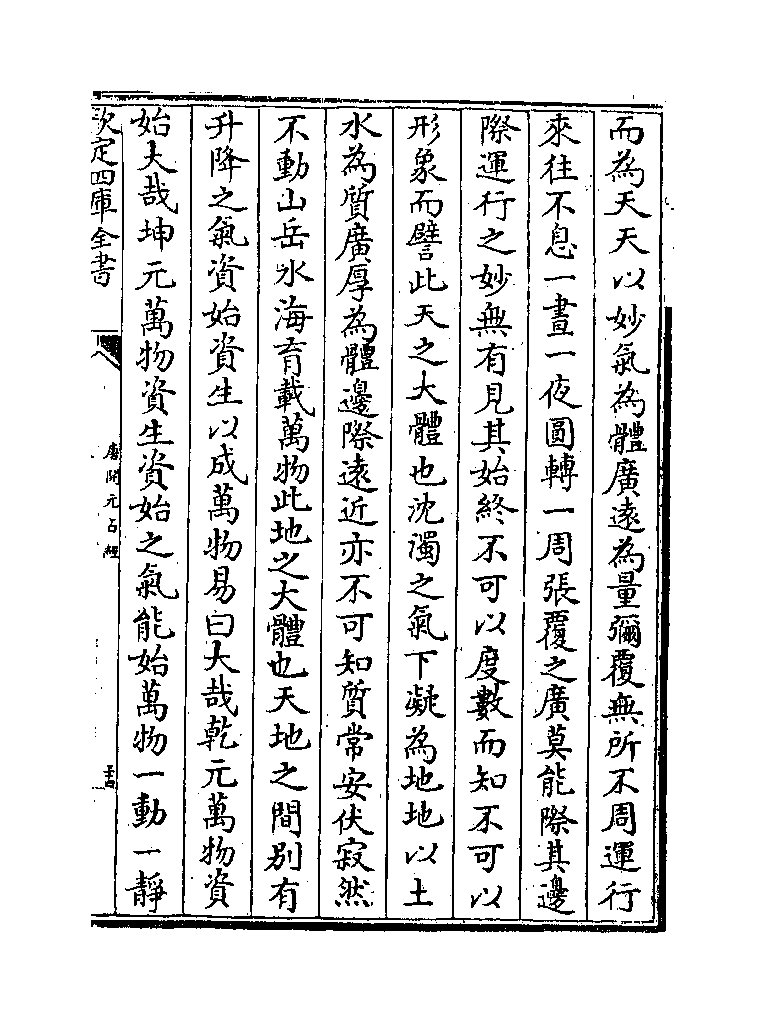 而為天天以妙氣為體廣逺為量彌覆無所不周運行
來往不息一晝一夜圓轉一周張覆之廣莫能際其邊
際運行之妙無有見其始終不可以度數而知不可以
形象而譬此天之大體也沈濁之氣下凝為地地以土
水為質廣厚為體邊際逺近亦不可知質常安伏寂然
不動山岳水海育載萬物此地之大體也天地之間别有
升降之氣資始資生以成萬物易曰大哉乾元萬物資
始大哉坤元萬物資生資始之氣能始萬物一動一靜
欽定四庫全書
唐開元占經